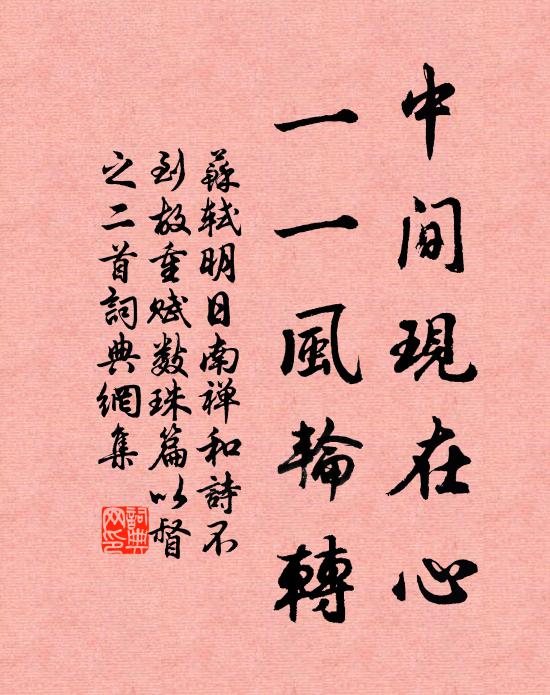 中间現在心
一一風輪轉
蘇轼明日南禅和詩不
到故重赋数珠篇以督
之二首詞典網集
詞典网印